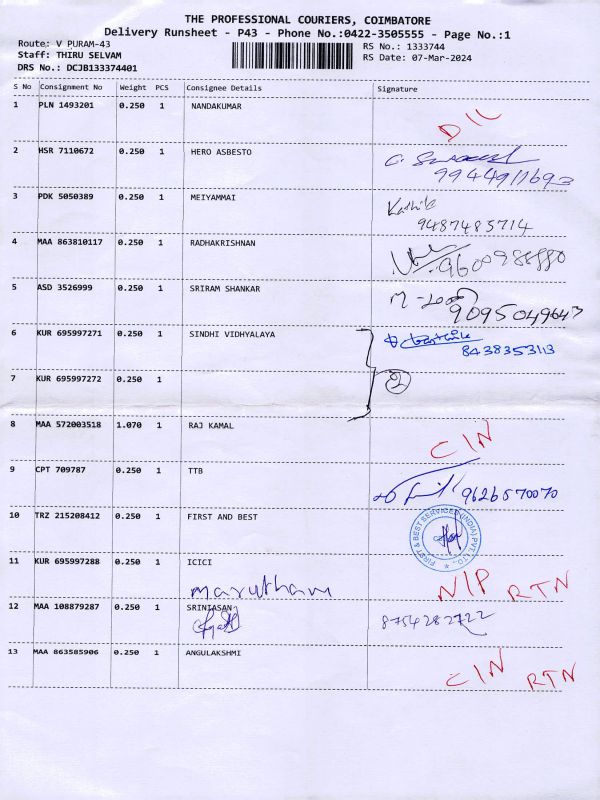 THE PROFESSIONAL COURIERS, COIMBATORE
Delivery Runsheet - P43 - Phone No.:0422-3505555 - Page No.:1
Route: V PURAM-43
RS No.: 1333744
Staff: THIRU SELVAM
RS Date: 07-Mar-2024
DRS No.: DCJB133374401
S No Consignment No Weight PCS Consignee Details Signature
1 PLN 1493201 0.250 1 NANDAKUMAR
2 HSR 7110672 0.250 1 HERO ASBESTO
9944911693
3 PDK 5050389 0.250 1 MEIYAMMAI
9487485714
4 MAA 863810117 0.250 1 RADHAKRISHNAN
5 ASD 3526999 0.250 1 SRIRAM SHANKAR
9095049643
6 KUR 695997271 0.250 1 SINDHI VIDHYALAYA
8438353113
7 KUR 695997272 0.250 1 2
8 MAA 572003518 1.070 1 RAJ KAMAL CIN
9 CPT 709787 0.250 1 TTB
9626570070
10 TRZ 215208412 0.250 1 FIRST AND BEST
FIRST & BEST SERVICES (INDIA) PVT. LTD.
11 KUR 695997288 0.250 1 ICICI
marutham N/P RTN
12 MAA 108879287 0.250 1 SRINIASAN
8754282722
13 MAA 863585906 0.250 1 ANGULAKSHMI CIN RTN